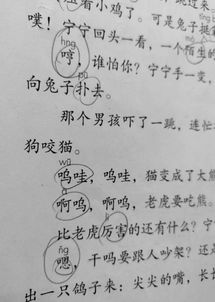 着小鸡了。可是兔子挺
噗！宁宁回头一看，一个陌生的
hng
哼，谁怕你？宁宁手一变，
pū
向兔子扑去。
那个男孩吓了一跳，连忙
狗咬猫。
wū
呜哇，呜哇，猫变成了大熊
啊呜，啊呜，老虎要吃熊。
比老虎厉害的还有什么？宁
ńg
嗯，干吗要跟人吵架？还是
出一只鸽子来：尖尖的嘴，长